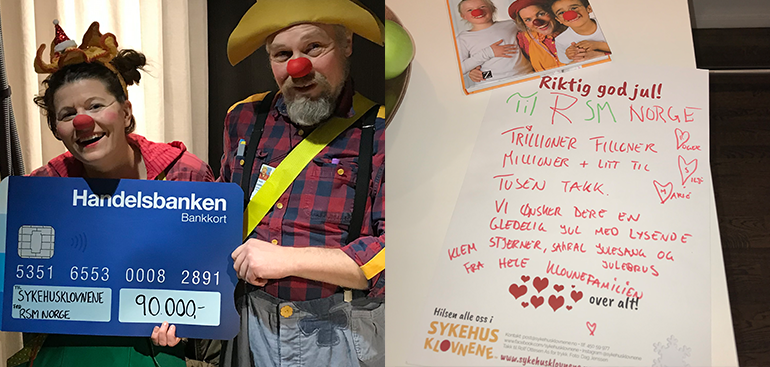 Handelsbanken
Bankkort
5351 6553 0008 2891
TIL
SYKEHUSKLOVNENE
FRA
RSM NORGE
90 000,-
Riktig god jul!
Til RSM NORGE
TRILLIONER FILLIONER
MILLIONER + LITT TIL
TUSEN TAKK.
VI ØNSKER DERE EN
GLEDELIG JUL MED LYSENDE
STJERNER, SKRÅL JULESANG OG
JULEBRUS
KLEM
FRA HELE KLOVNEFAMILIEN
MARIE
over alt!
Hilsen alle oss i
SYKEHUS
KLOVNENE
www.sykehusklovnene